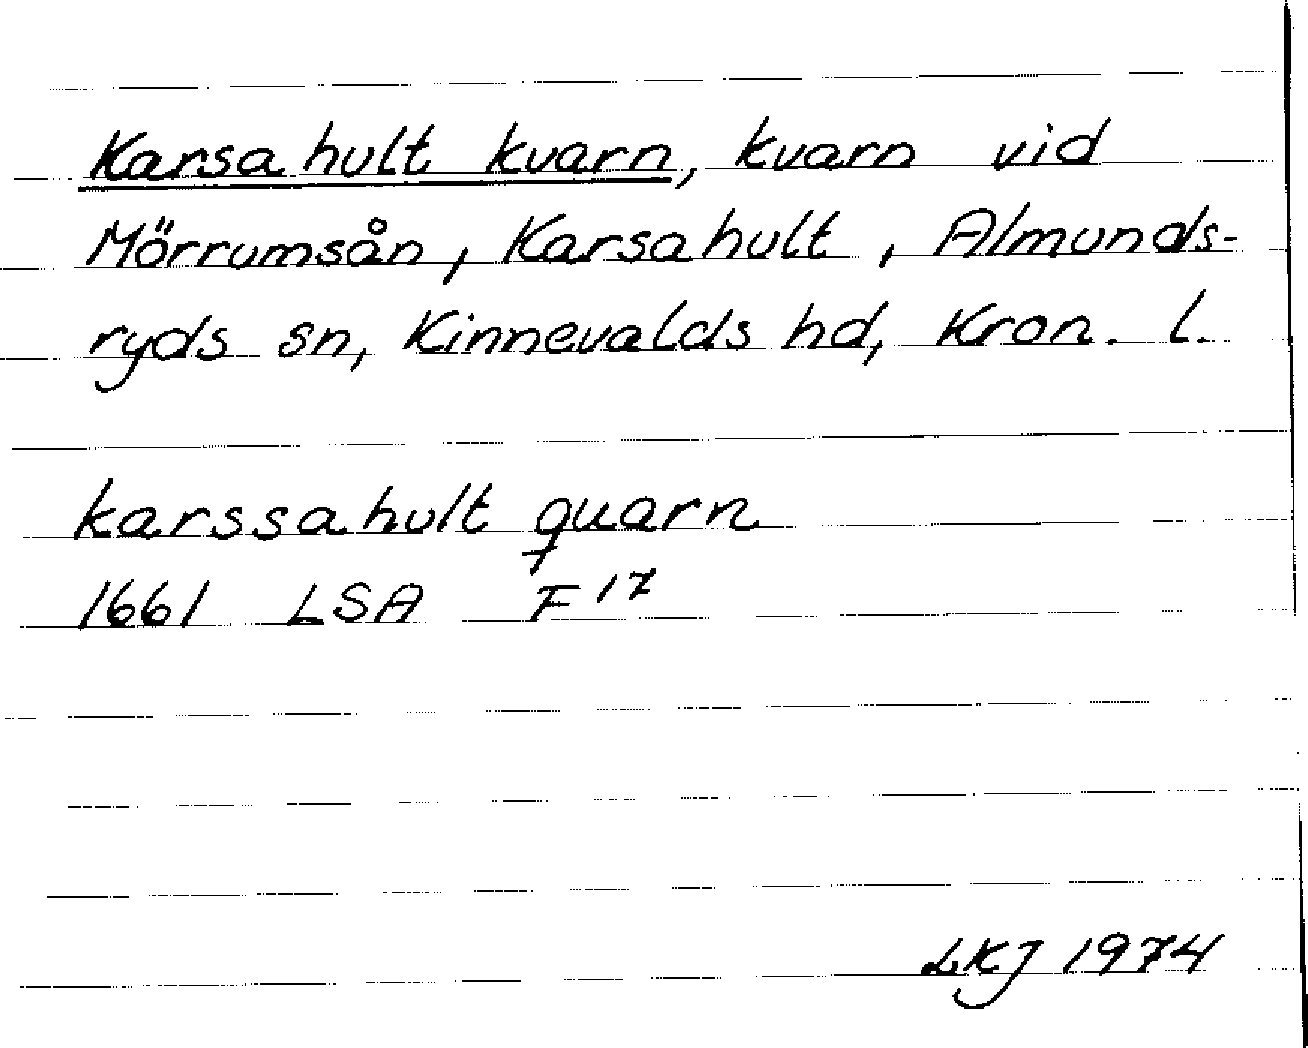 Karsahult kvarn, kvarn vid
Mörrumsån, Karsahult, Almunds-
ryds sn, Kinnevalds hd, Kron. l.
karssahult quarn
1661 LSA F17
LKJ 1974